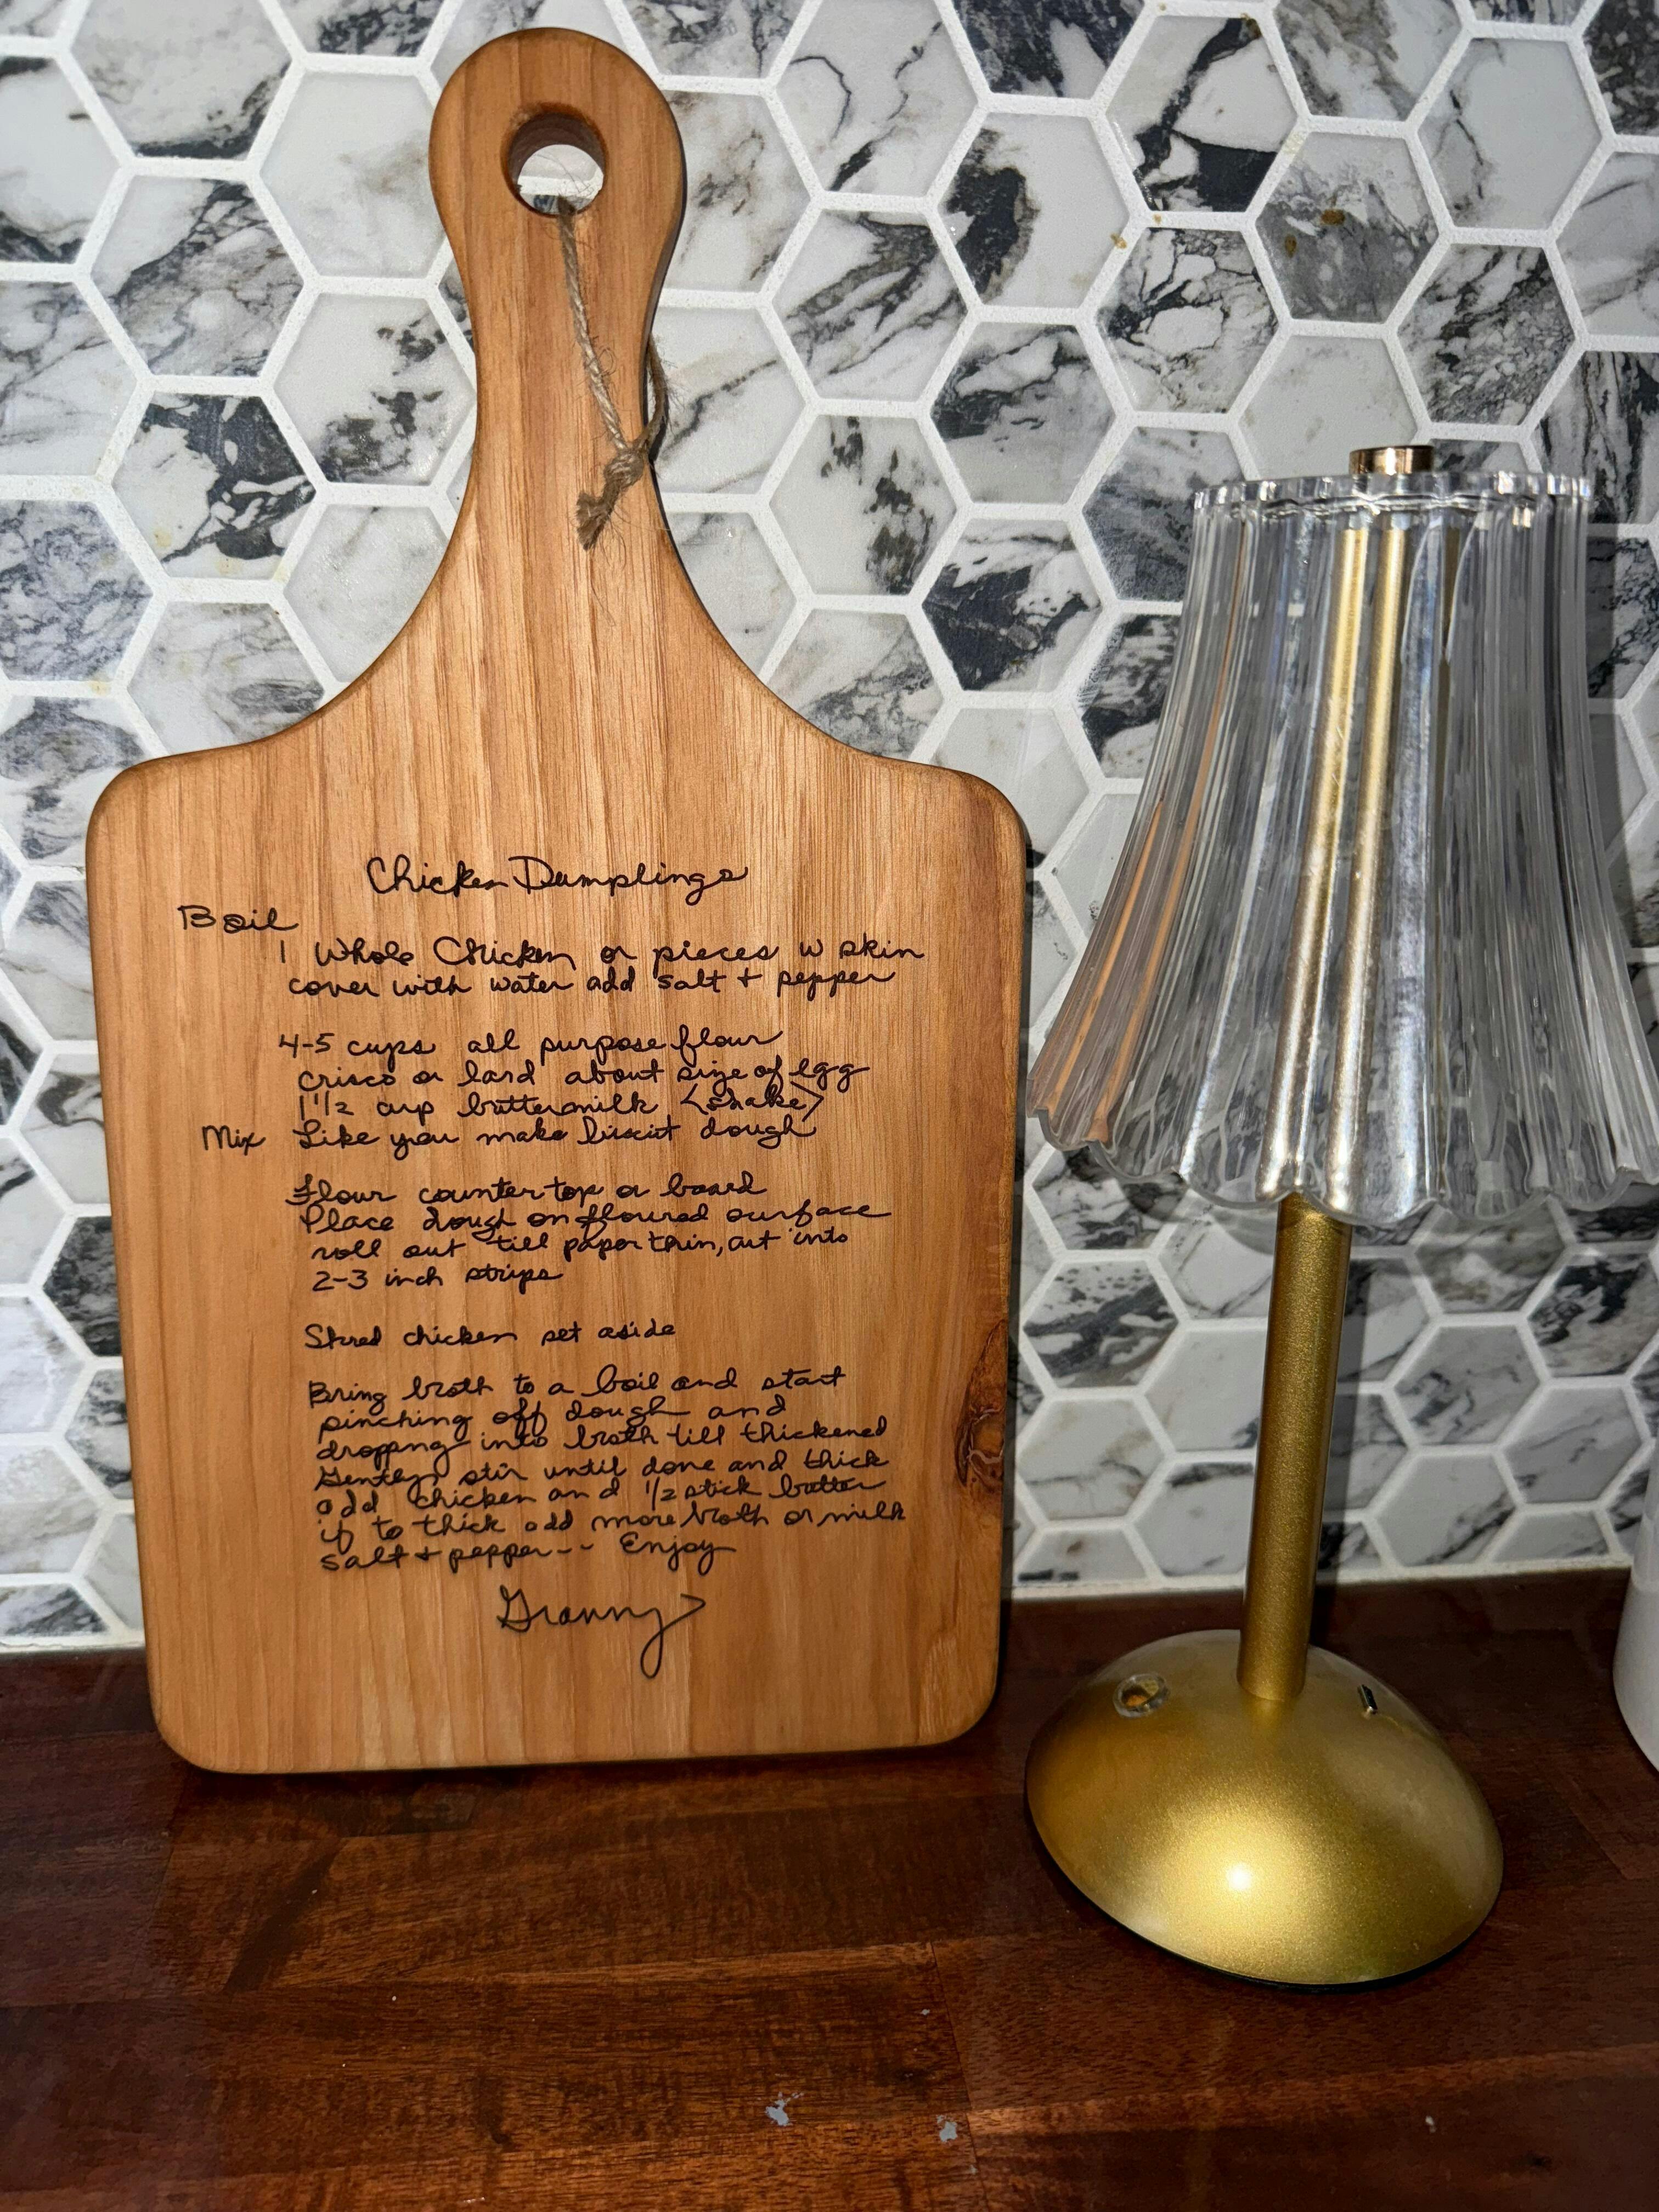 Chicken Dumplings
Boil
1 Whole Chicken or pieces w skin
cover with water add salt + pepper
4-5 cups all purpose flour
crisco or lard about size of egg
1 1/2 cup buttermilk <shake>
Mix Like you make biscuit dough
Flour counter top or board
Place dough on floured surface
roll out till paper thin, cut into
2-3 inch strips
Shred chicken set aside
Bring broth to a boil and start
pinching off dough and
dropping into broth till thickened
Gently stir until done and thick
add chicken and 1/2 stick butter
if to thick add more broth or milk
salt + pepper-- Enjoy
Granny